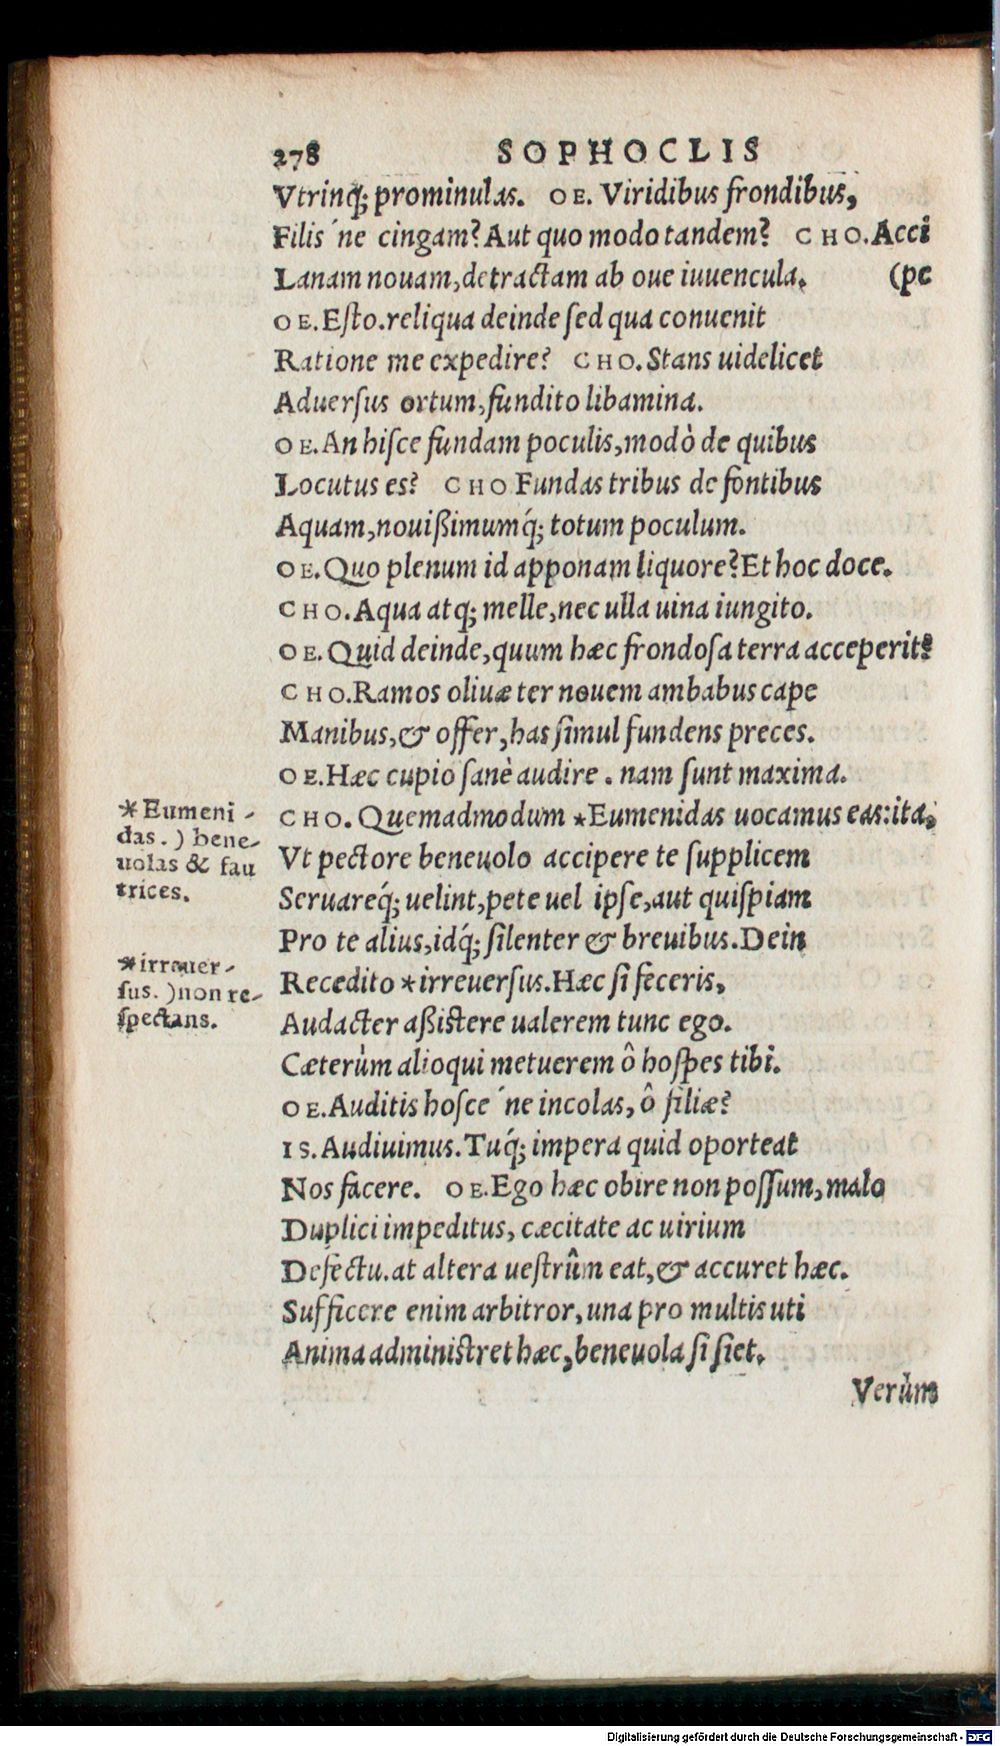 278 SOPHOCLIS
Vtrinq́; prominulas. OE. Viridibus frondibus,
Filis ́ne cingam? Aut quo modo tandem? CHO. Acci
Lanam nouam, detractam ab oue iuuencula. (pe
OE. Eſto. reliqua deinde ſed qua conuenit
Ratione me expedire? CHO. Stans uidelicet
Aduerſus ortum, fundito libamina.
OE. An hiſce fundam poculis, modò de quibus
Locutus es? CHO Fundas tribus de fontibus
Aquam, nouißimumq́; totum poculum.
OE. Quo plenum id apponam liquore? Et hoc doce.
CHO. Aqua atq; melle, nec ulla uina iungito.
OE. Quid deinde, quum hæc frondoſa terra acceperit?
CHO. Ramos oliuæ ter nouem ambabus cape
Manibus, & offer, has ſimul fundens preces.
OE. Hæc cupio ſanè audire. nam ſunt maxima.
CHO. Quemadmodum *Eumenidas uocamus eas: ita,
Vt pectore beneuolo accipere te ſupplicem
Seruareq́; uelint, pete uel ipſe, aut quiſpiam
Pro te alius, idq́; ſilenter & breuibus. Dein
Recedito *irreuerſus. Hæc ſi feceris,
Audacter aßiſtere ualerem tunc ego.
Cæterùm alioqui metuerem ô hoſpes tibi.
OE. Auditis hoſce ́ne incolas, ô filiæ?
IS. Audiuimus. Tuq́; impera quid oporteat
Nos facere. OE. Ego hæc obire non poſſum, malo
Duplici impeditus, cæcitate ac uirium
Defectu. at altera ueſtrûm eat, & accuret hæc.
Sufficere enim arbitror, una pro multis uti
Anima adminiſtret hæc, beneuola ſi ſiet.
Verùm
*Eumeni-
das.) bene-
uolas & fau
trices.
*irreuer-
ſus.) non re-
ſpectans.
Digitalisierung gefördert durch die Deutsche Forschungsgemeinschaft - DFG